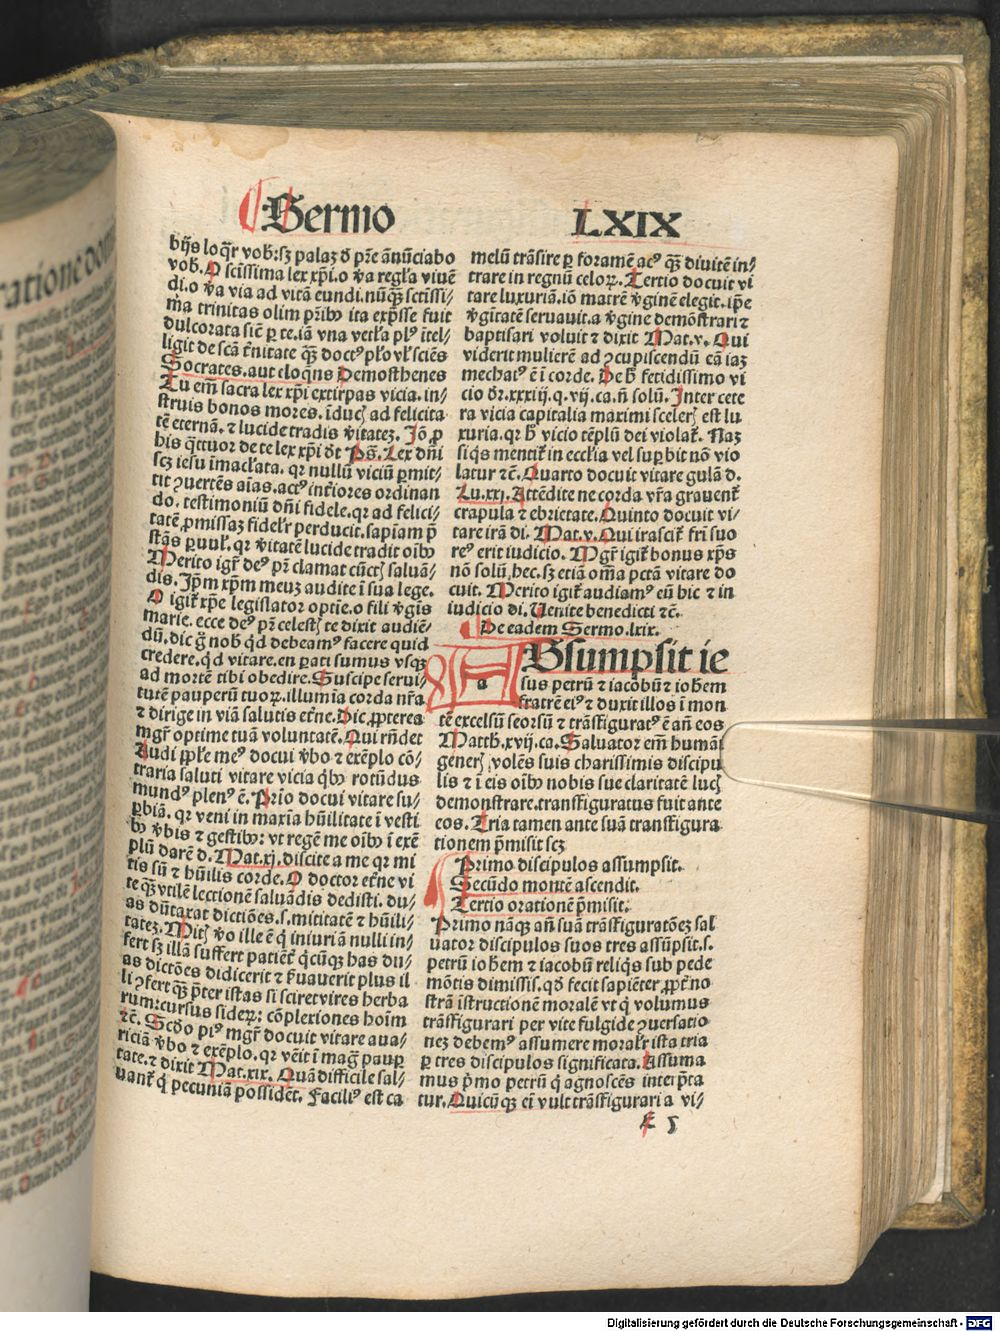 Sermo LXIX
bijs loq̄r vob̄: sꝫ palaꝫ d̄ pr̄e ãnũciabo
vob̄. O sctissima lex xp̄i. o v̾a regl̃a viuē
di. o v̾a via ad vitã eundi. nũq̃ꝫ sctissi⸗
m̃a trinitas olim pr̃ibꝰ ita exp̃sse fuit
dulcorata siẽ ꝑ te. iã vna vetl̃a plꝰ ĩtel⸗
ligit de scã t̾nitate q̃ꝫ doctꝰ pl̃o vl̃ sciẽs
Socrates. aut eloq̃ns Demosthenes
Tu em̃ sacra lex xp̃i extirpas vicia. in⸗
struis bonos mores. ĩducꝭ ad felicita
tẽ eternã. ⁊ lucide tradis v̾itateꝫ. Jõ ꝓ
bis q̃ttuor de te lex xp̃i dr̃t Ps̃. Lex dñi
scꝫ iesu ĩmacl̃ata. qꝛ nullũ viciũ ꝑmit⸗
tit ꝯuertẽs aĩas. actꝰ int̾iores ordinan
do. testimoniũ dñi fidele. qꝛ ad felici⸗
tatẽ ꝓmissaꝫ fidelr̃ perducit. sapiẽtiam p̃
stãs ꝑuul̃. qꝛ v̾itatẽ lucide tradit oĩbꝰ
Merito igr̃ deꝰ pr̃ clamat cũctꝭ saluã⸗
dis. Jp̃m xp̃m meuꝫ audite ĩ sua lege.
O igit̃ xp̃e legislator optĩe. o fili v̾gĩs
marie. ecce deꝰ pr̃ celestꝭ te dixit audiẽ⸗
dũ. dic g̊ nob̄ q̃d debeamꝰ facere quid
credere. q̃d vitare. en ꝑati sumus vsqꝫ
ad mortẽ tibi obedire. Suscipe serui⸗
tutẽ pauperũ tuoꝝ. illumĩa corda nr̃a
⁊ dirige in viã salutis et̾ne. Dic ꝓpterea
mgr̃ optime tuã voluntatẽ. Qui rñdet
Audi ppl̃e meꝰ docui v̾bo ⁊ exẽplo cõ⸗
traria saluti vitare vicia q̃bꝰ rotũdus
mundꝰ plenꝰ ẽ. Prĩo docui vitare su⸗
ꝑbiã. qꝛ veni in maxĩa hũilitate ĩ vesti
bꝰ v̾bis ⁊ gestibꝰ: vt regẽ me oĩbꝰ ĩ exẽ
plũ darẽ d. Mat. xj. discite a me qꝛ mi
tis sũ ⁊ hũilis corde. O doctor et̾ne vi
te q̃ꝫ vtilẽ lectionẽ saluãdis dedisti. du⸗
as dũtaxat dictiões. s. mititatẽ ⁊ hũili⸗
tateꝫ. Mitꝭ v̾o ille ẽ q̃ iniuriã nulli in⸗
fert sꝫ illã suffert patiẽt̾ q̃cũqꝫ has du⸗
as dictões didicerit ⁊ s̾uauerit plus il
li ꝯfert q̃ꝫ p̃ter istas si sciret vires herba
rum: cursus sideꝝ: cõplexiones hoĩm
⁊c̃. Scd̃o piꝰ mgr̃ docuit vitare aua⸗
riciã v̾bo ⁊ exẽplo. qꝛ vẽit ĩ mag̃ paupꝑ
tate. ⁊ dixit Mat. xix. Quã difficile sal⸗
uant̃ q̃ pecuniã possidẽt. Faciliꝰ est ca
melũ trãsire ꝑ foramẽ acꝰ q̃ꝫ diuitẽ in⸗
trare in regnũ celoꝝ. Tertio docuit vi
tare luxuriã. iõ matrẽ v̾ginẽ elegit. ip̃e
v̾gĩtatẽ seruauit. a v̾gine demõstrari ⁊
baptisari voluit ⁊ dixit Mat. v. Qui
viderit mulierẽ ad ꝯcupiscendũ eã iaꝫ
mechatꝰ ẽ ĩ corde. De h̄ fetidissimo vi
cio dr̃. xxxij. q. vij. ca. ñ solũ. Inter cete
ra vicia capitalia maximi scelerꝭ est lu
xuria. qꝛ h̄ vicio tẽplũ dei violat̃. Naꝫ
siq̃s mentit̃ in eccl̃ia vel supꝑbit nõ vio
latur ⁊c̃. Quarto docuit vitare gulã d.
Lu. xxj. Attẽdite ne corda vr̃a grauent̃
crapula ⁊ ebrietate. Quinto docuit vi⸗
tare irã di. Mat. v. Qui irascit̃ fr̃i suo
reꝰ erit iudicio. Mgr̃ igit̃ bonus xp̃s
nõ solũ hec. sꝫ etiã om̃ia pctã vitare do
cuit. Merito igit̃ audiamꝰ eũ hic ⁊ in
iudicio di. Uenite benedicti ⁊c̃.
De eadem Sermo. lxix.
ABsumpsit ie
sus petrũ ⁊ iacobũ ⁊ iohẽm
fratrẽ eiꝰ ⁊ duxit illos ĩ mon
tẽ excelsũ seorsũ ⁊ trãsfiguratꝰ ẽ añ eos
Matth. xvij. ca. Saluator em̃ humãi
generꝭ volẽs suis charissimis discipu
lis ⁊ ĩ eis oĩbꝰ nobis sue claritatẽ lucꝭ
demonstrare. transfiguratus fuit ante
eos. Tria tamen ante suã transfigura
tionem p̃misit scꝫ
Primo discipulos assumpsit.
Secũdo montẽ ascendit.
Tertio orationẽ p̃misit.
Primo nãqꝫ añ suã trãsfiguratõeꝫ sal
uator discipulos suos tres assũpsit. s.
petrũ iohẽm ⁊ iacobũ reliq̃s sub pede
mõtis dimissis. qd̃ fecit sapiẽter ꝓpt̾ no
strã ĩstructionẽ moralẽ vt q̃ volumus
trãsfigurari per vite fulgide ꝯuersatio
neꝫ debemꝰ assumere moralr̃ ista tria
ꝑ tres discipulos significata. Assuma
mus p̃mo petrũ q̃ agnoscẽs interp̃ta
tur. Quicũqꝫ em̃ vult trãsfigurari a vi⸗
Digitalisierung gefördert durch die Deutsche Forschungsgemeinschaft - DFG